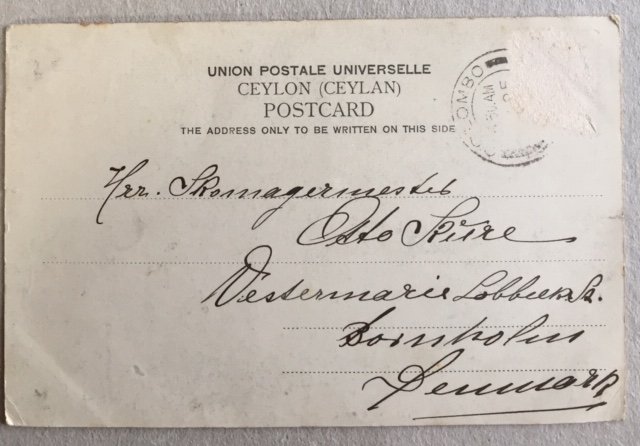 UNION POSTALE UNIVERSELLE
CEYLON (CEYLAN)
POSTCARD
THE ADDRESS ONLY TO BE WRITTEN ON THIS SIDE
COLOMBO
AM
Hrr. Skomagermester
Otto Kure
Vestermarie
Bornholm
Denmark